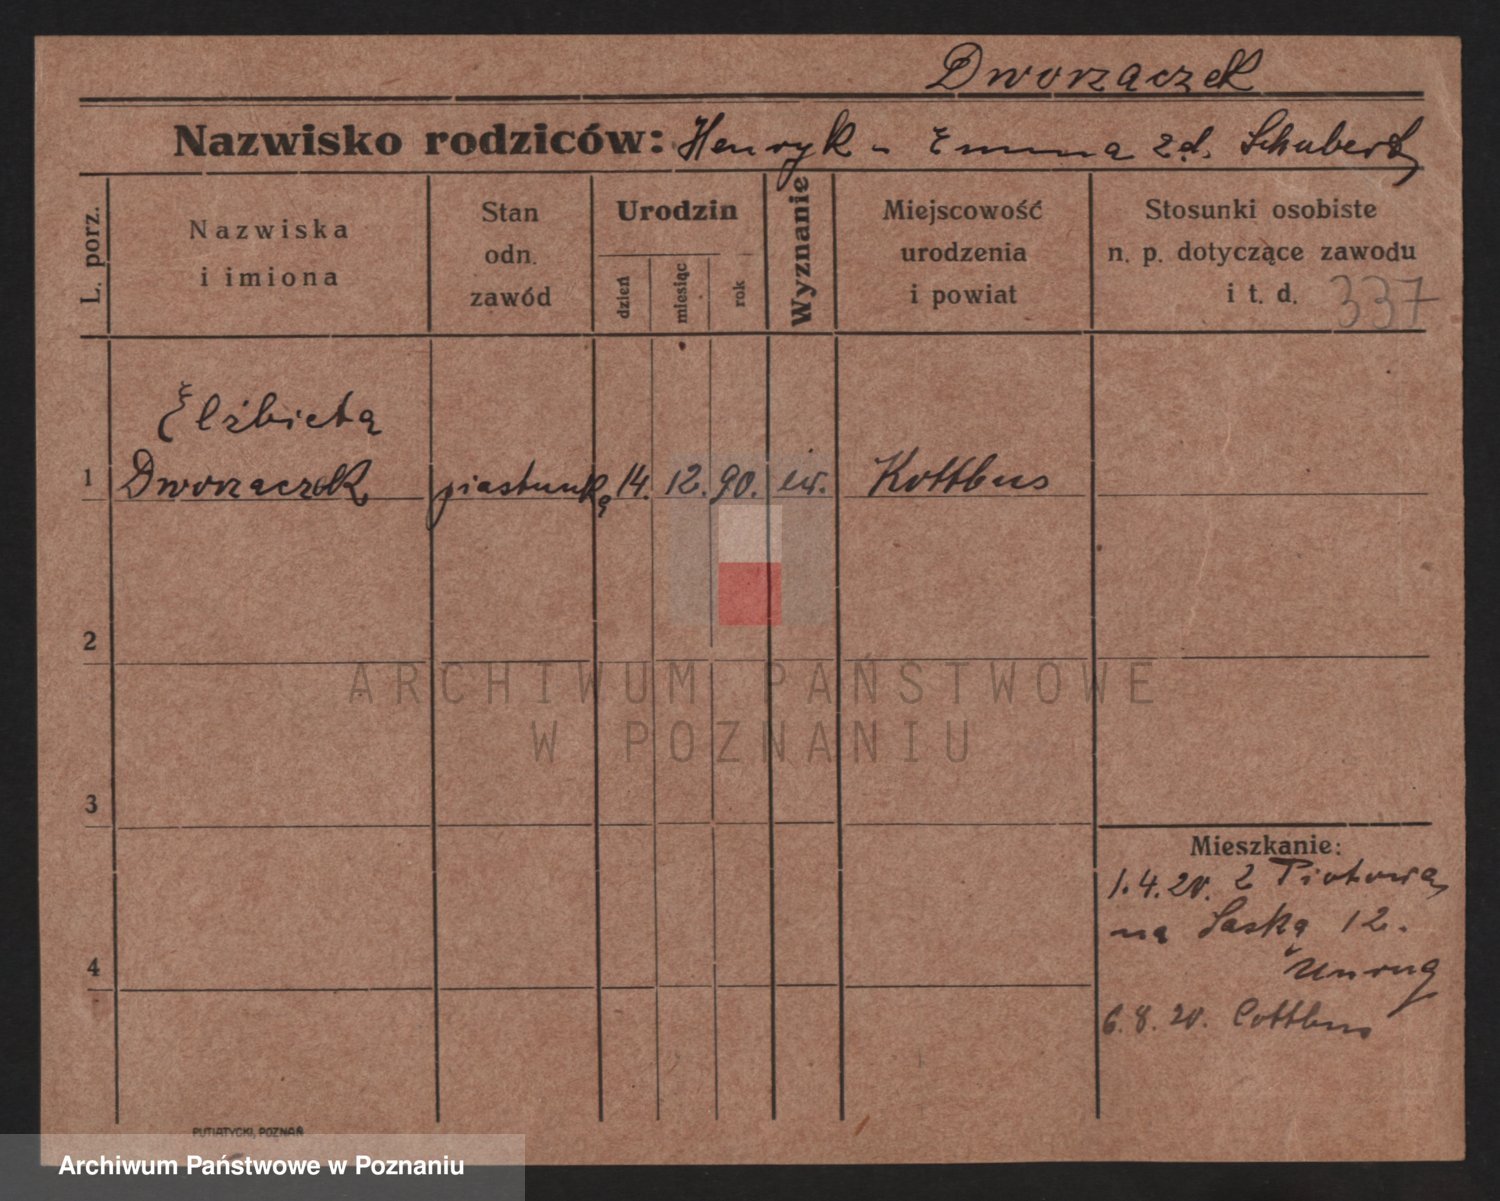 Dworzaczek
Nazwisko rodziców: Henryk - Emma zd. Schubert
L. porz.
Nazwiska
i imiona
Stan
odn.
zawód
Urodzin
dzień
miesiąc
rok
Wyznanie
Miejscowość
urodzenia
i powiat
Stosunki osobiste
n. p. dotyczące zawodu
i t. d. 337
Elżbieta
1 Dworzaczek piastunka 14. 12. 90. ew. Kottbus
2
ARCHIWUM PAŃSTWOWE
W POZNANIU
3
Mieszkanie:
1.4.20. z Piotrowa
na Saską 12.
4
Unrug
6.8.20. Cottbus
PUTIATYCKI, POZNAŃ
Archiwum Państwowe w Poznaniu